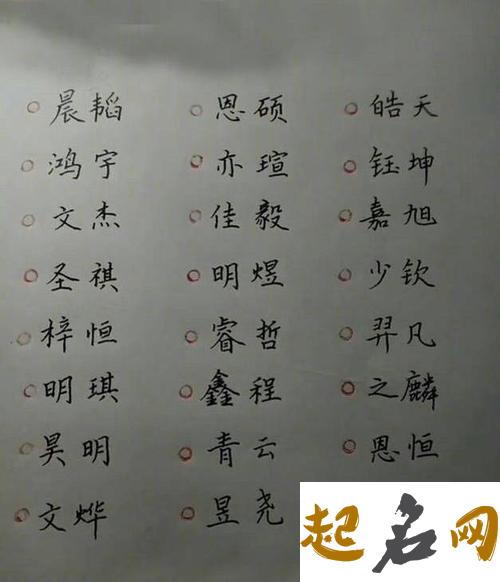 晨韬 恩硕 皓天
鸿宇 亦瑄 钰坤
文杰 佳毅 嘉旭
圣祺 明煜 少钦
梓恒 睿哲 羿凡
明琪 鑫程 之麟
昊明 青云 恩恒
文烨 昱尧
起名网